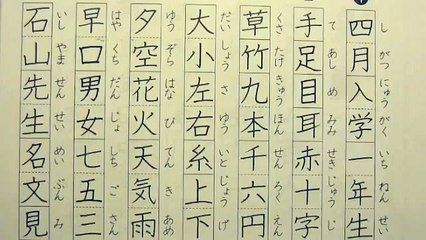 四月入学一年生
し がつ にゅう がく いち ねん せい
手足目耳赤十字
て あし め みみ せき じゅう じ
草竹九本千六円
くさ たけ きゅう ほん せん ろく えん
大小左右糸上下
だい しょう さ ゆう いと じょう げ
夕空花火天気雨
ゆう ぞら はな び てん き あめ
早口男女七五三
はや くち だん じょ しち ご さん
石山先生名文見
いし やま せん せい めい ぶん み